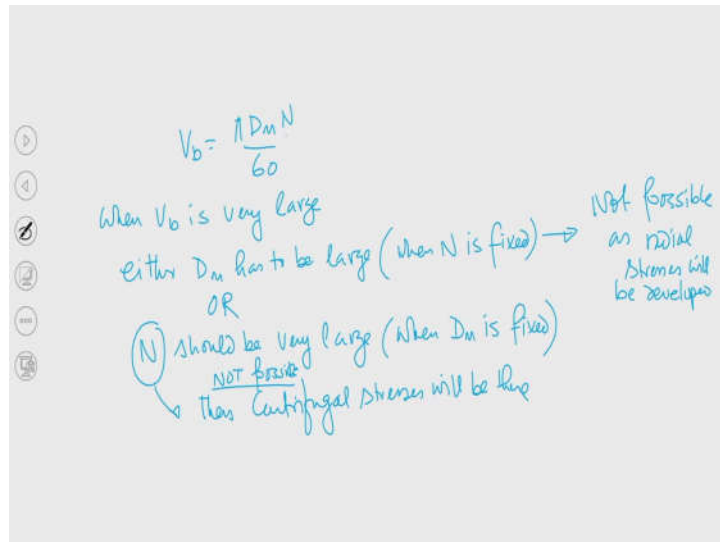 V_b = πD_m N / 60
when V_b is very large
either D_m has to be large (when N is fixed) → Not possible as radial stresses will be developed
OR
N should be very large (when D_m is fixed)
NOT possible
Then Centrifugal stresses will be there